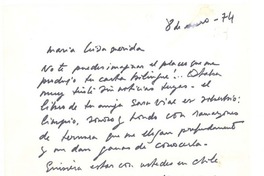 8 de enero - 74
María Luisa querida
No te puedes imaginar el placer que me
produjo tu carta bilingüe!... Estaba
muy triste sin noticias tuyas. el
libro de tu amiga Sara Vial es
limpio, sonoro y hondo con
de ternura que me llegan profundamente
y me dan ganas de conocerla.
Quisiera estar con ustedes en Chile